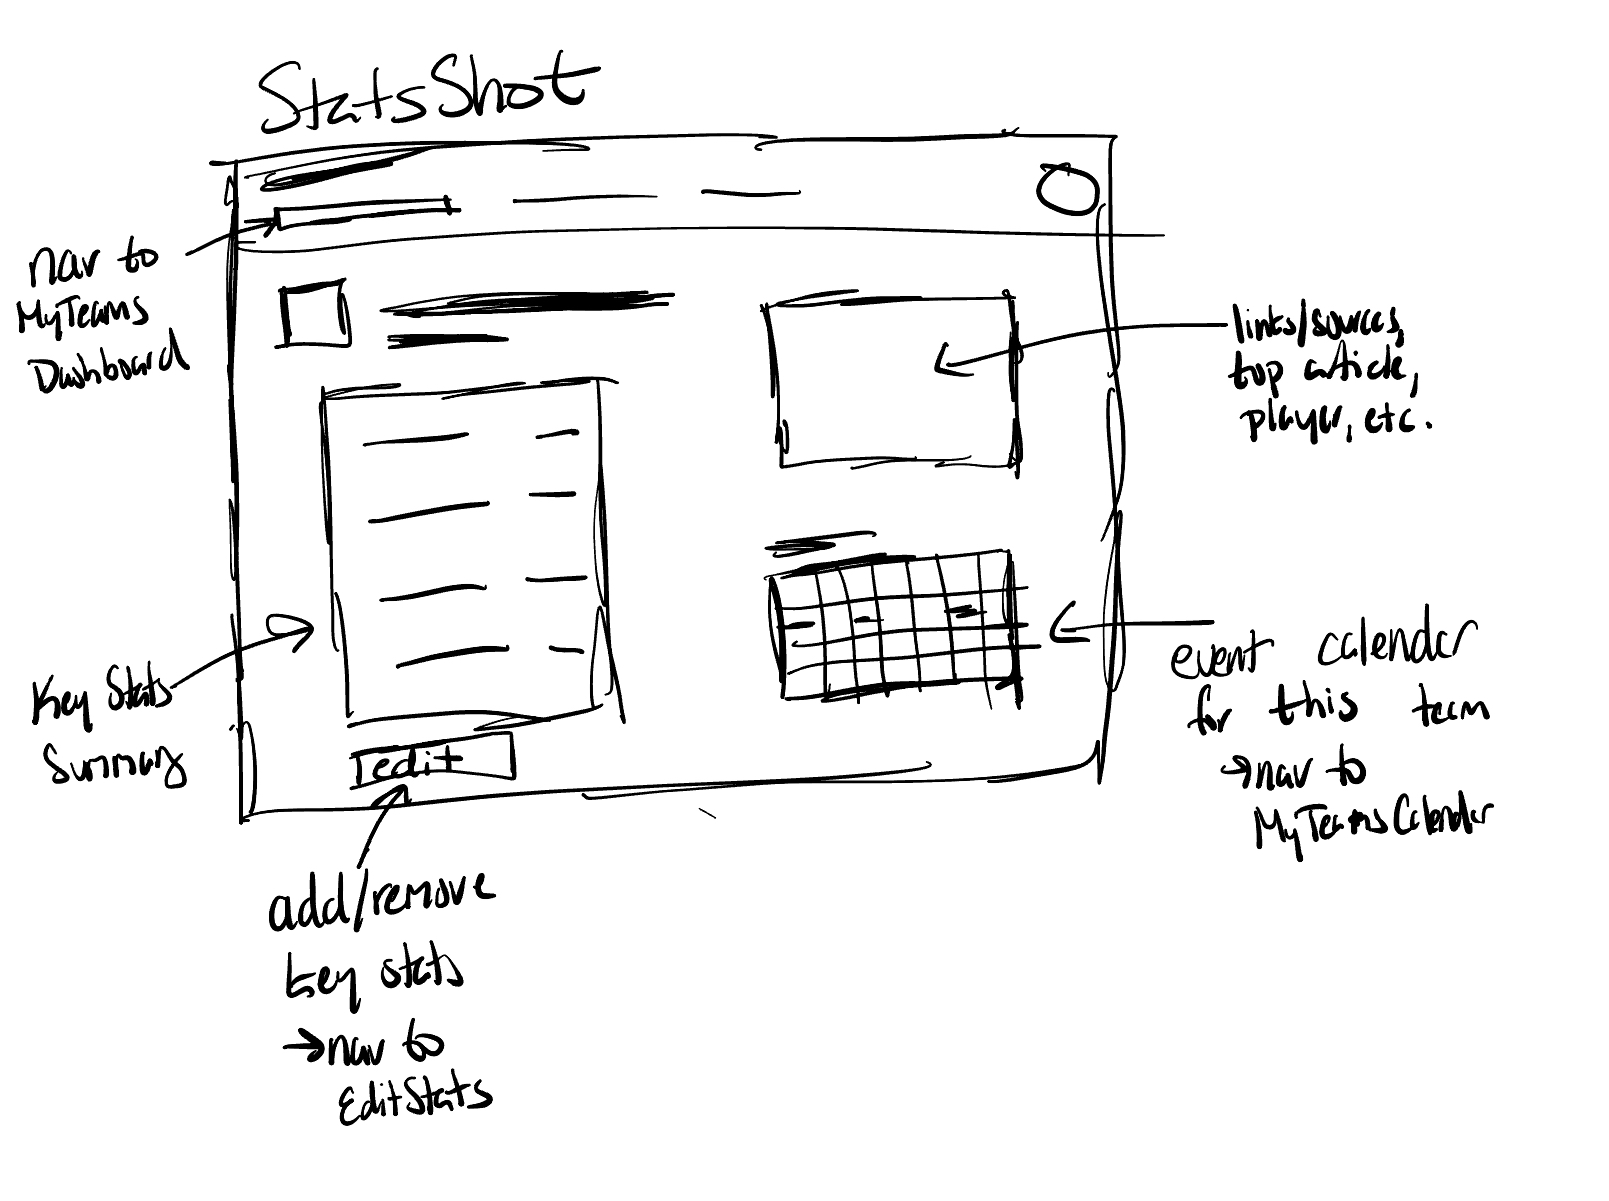 StatsShot
nav to
MyTeams
Dashboard
links/sources,
top article,
player, etc.
Key Stats
Summary
edit
event calendar
for this team
→nav to
MyTeamsCalendar
add/remove
key stats
→nav to
EditStats